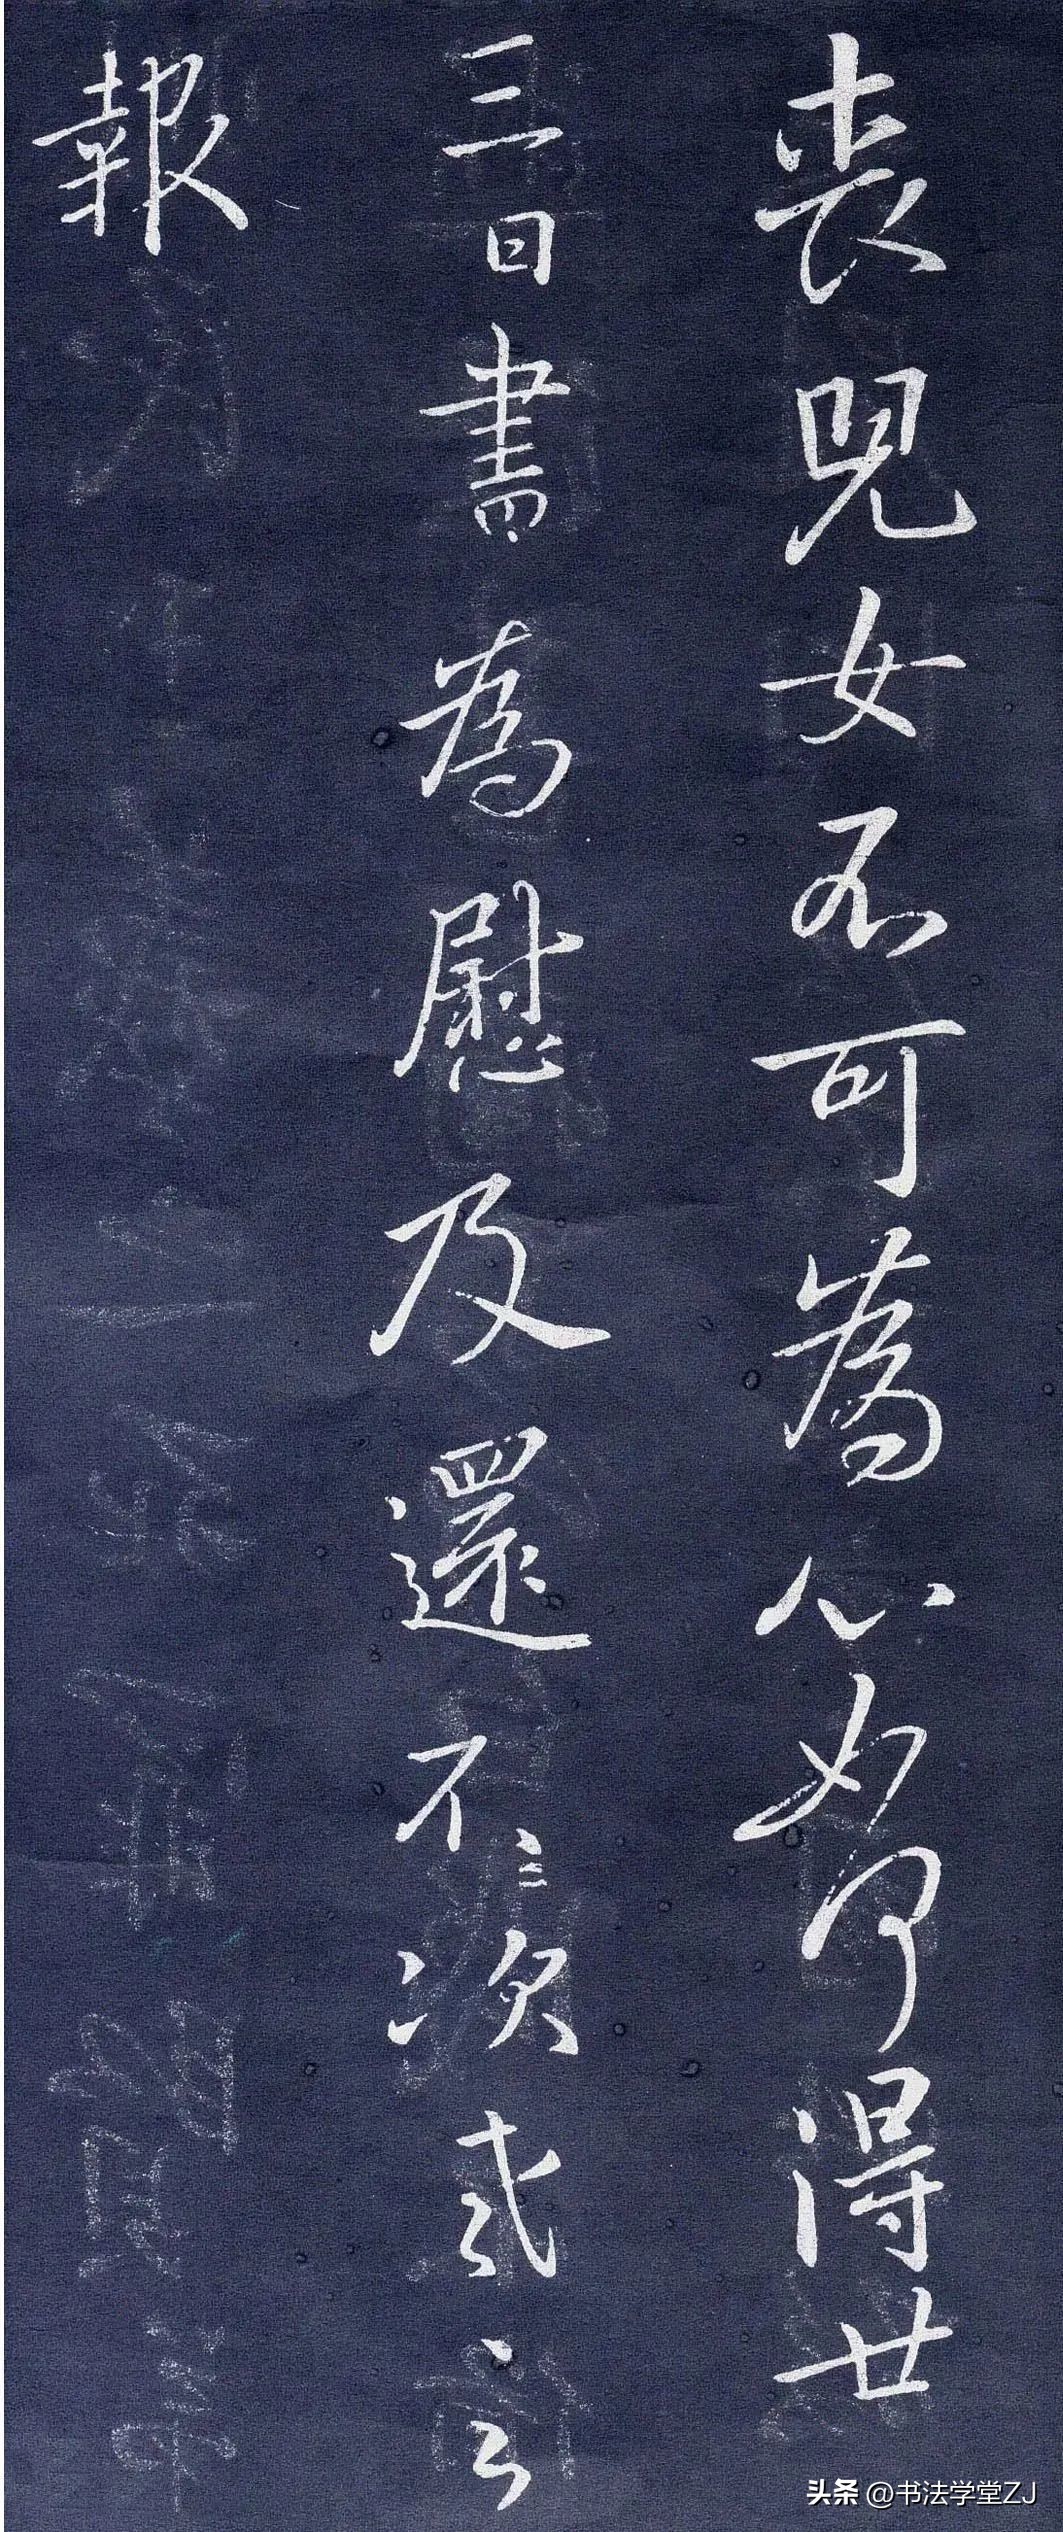 喪兒女不可為心如何得廿
三日書為慰及還不次羲之
報
头条 @书法学堂ZJ